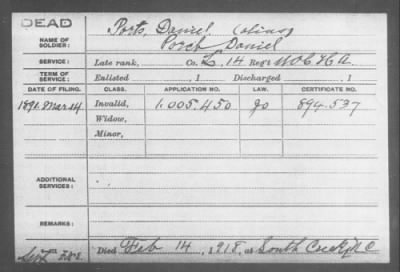 DEAD
NAME OF SOLDIER: Ports, Daniel (alias)
Porch Daniel
SERVICE: Late rank, Co. L, 14 Reg't U.S.C. H A.
TERM OF SERVICE: Enlisted , 1 Discharged , 1
DATE OF FILING. CLASS. APPLICATION NO. LAW. CERTIFICATE NO.
1891. Mar 14 Invalid, 1.005.450 894.537
Widow,
Minor,
ADDITIONAL SERVICES:
REMARKS:
Died Feb 14, 1918, at South Creek, N C